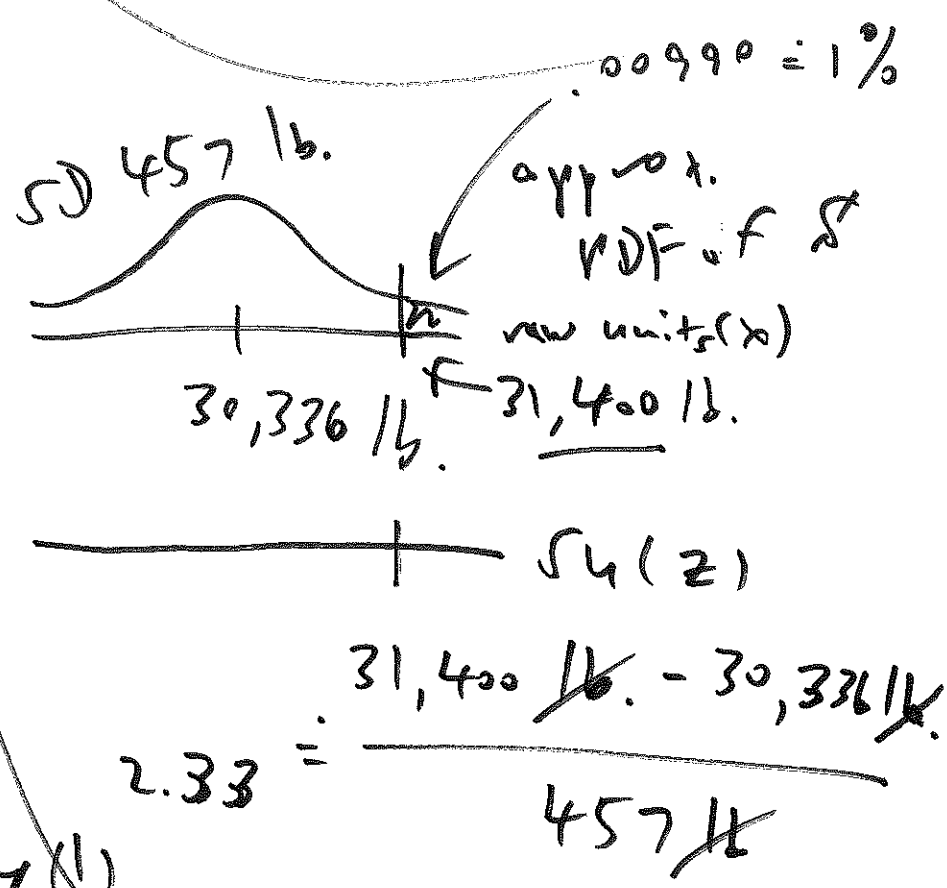 .00990 ≐ 1%
SD 457 lb.
approx.
PDF of S
raw units (x)
30,336 lb.
31,400 lb.
SU (z)
31,400 lb. - 30,336 lb.
2.33 ≐
457 lb
(1)